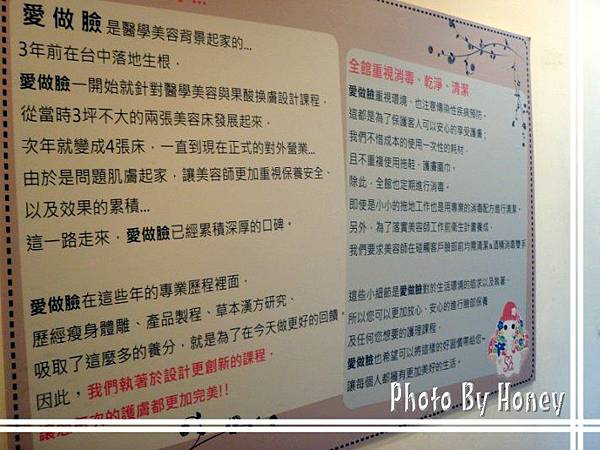 愛做臉 是醫學美容背景起家的...
3年前在台中落地生根，
愛做臉一開始就針對醫學美容與果酸換膚設計課程，
從當時3坪不大的兩張美容床發展起來，
次年就變成4張床，一直到現在正式的對外營業...
由於是問題肌膚起家，讓美容師更加重視保養安全、
以及效果的累積...
這一路走來，愛做臉已經累積深厚的口碑。
愛做臉在這些年的專業歷程裡面，
歷經瘦身體雕、產品製程、草本漢方研究、
吸取了這麼多的養分，就是為了在今天做更好的回饋。
因此，我們執著於設計更創新的課程，
的護膚都更加完美!!
全館重視消毒、乾淨、清潔
愛做臉重視環境、也注意傳染性疾病預防，
這都是為了保護客人可以安心的享受護膚；
我們不惜成本的使用一次性的耗材，
且不重複使用拖鞋、護膚圍巾。
除此，全館也定期進行消毒。
即使是小小的拖地工作也是用專業的消毒配方進行清潔。
另外，為了落實美容師工作前衛生計畫養成，
我們要求美容師在碰觸客戶臉部前均需清潔&酒精消毒雙手
這些小細節是愛做臉對於生活環境的追求以及執著，
所以您可以更加放心、安心的進行臉部保養
及任何您想要的護理課程，
愛做臉也希望可以將這樣的好習慣帶給您~
讓每個人都擁有更加美好的生活。
Photo By Honey